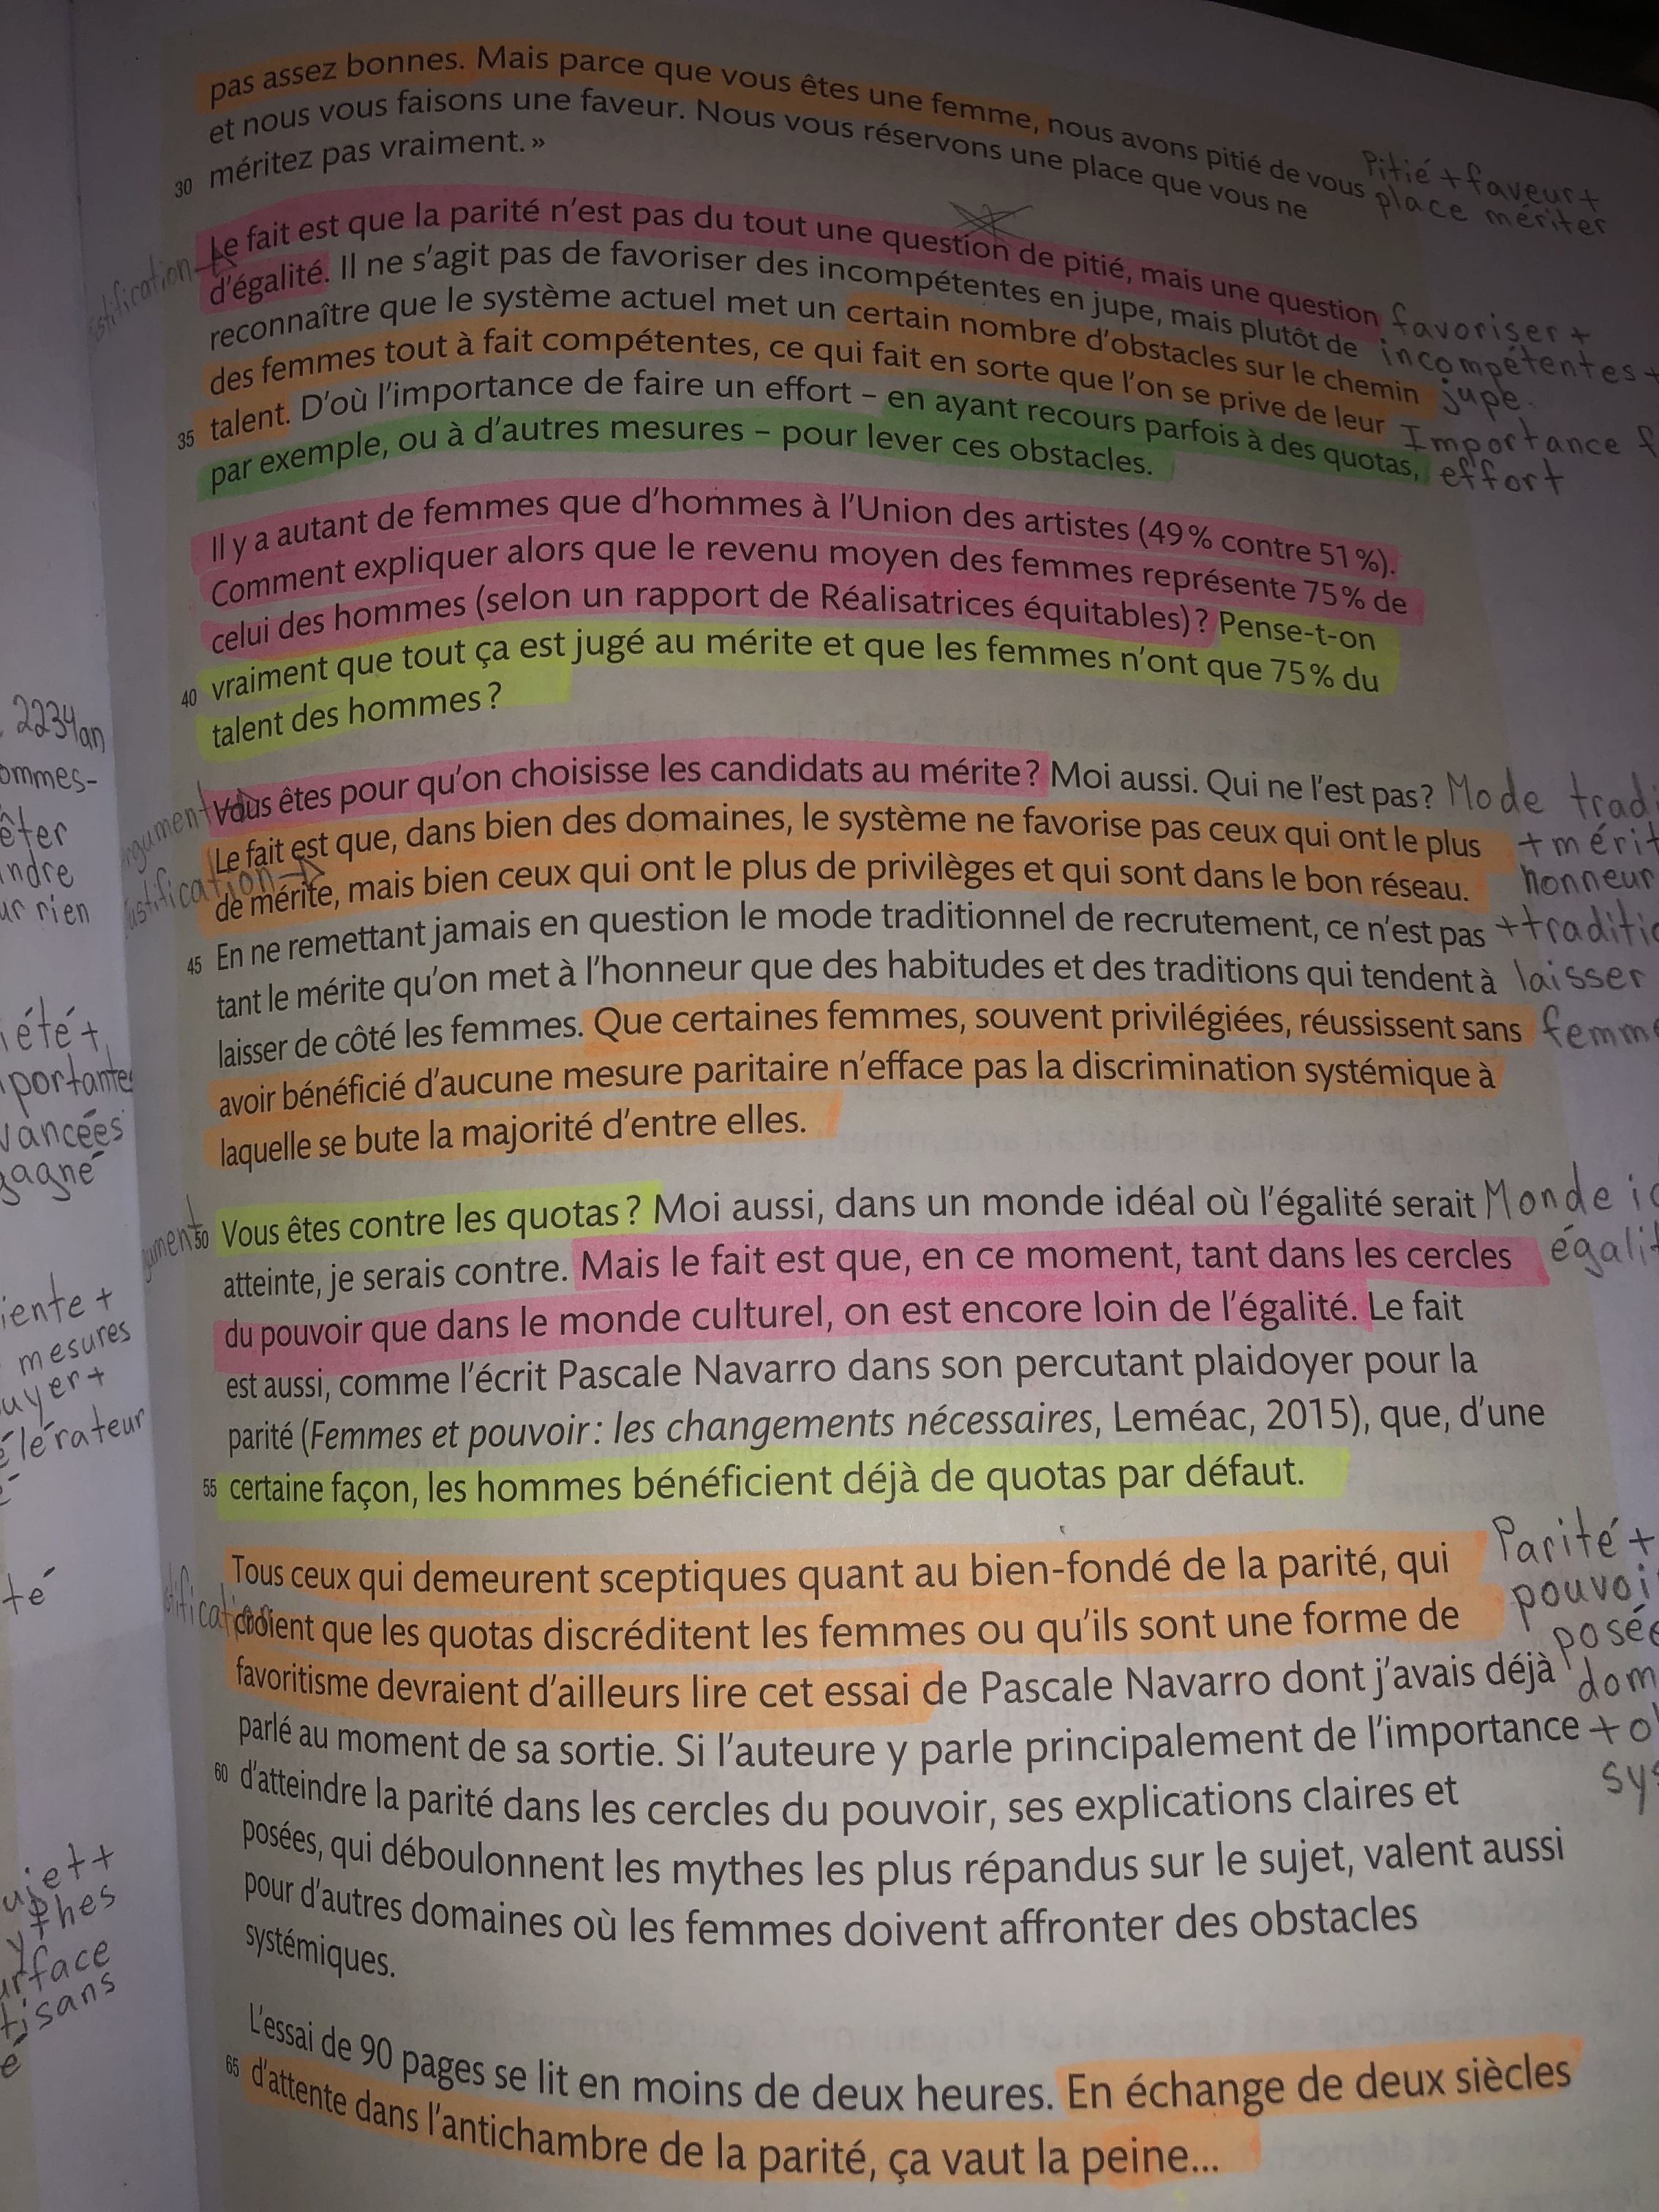 pas assez bonnes. Mais parce que vous êtes une femme, nous avons pitié de vous
et nous vous faisons une faveur. Nous vous réservons une place que vous ne
30 méritez pas vraiment. »
Pitié + faveur +
place mériter
Le fait est que la parité n'est pas du tout une question de pitié, mais une question
d'égalité. Il ne s'agit pas de favoriser des incompétentes en jupe, mais plutôt de
reconnaître que le système actuel met un certain nombre d'obstacles sur le chemin
des femmes tout à fait compétentes, ce qui fait en sorte que l'on se prive de leur
35 talent. D'où l'importance de faire un effort – en ayant recours parfois à des quotas,
par exemple, ou à d'autres mesures – pour lever ces obstacles.
favoriser +
incompétentes +
jupe.
Importance
effort
Il y a autant de femmes que d'hommes à l'Union des artistes (49 % contre 51 %).
Comment expliquer alors que le revenu moyen des femmes représente 75 % de
celui des hommes (selon un rapport de Réalisatrices équitables) ? Pense-t-on
40 vraiment que tout ça est jugé au mérite et que les femmes n'ont que 75 % du
talent des hommes ?
2234an
Vous êtes pour qu'on choisisse les candidats au mérite ? Moi aussi. Qui ne l'est pas?
Le fait est que, dans bien des domaines, le système ne favorise pas ceux qui ont le plus
de mérite, mais bien ceux qui ont le plus de privilèges et qui sont dans le bon réseau.
45 En ne remettant jamais en question le mode traditionnel de recrutement, ce n'est pas
tant le mérite qu'on met à l'honneur que des habitudes et des traditions qui tendent à
laisser de côté les femmes. Que certaines femmes, souvent privilégiées, réussissent sans
avoir bénéficié d'aucune mesure paritaire n'efface pas la discrimination systémique à
laquelle se bute la majorité d'entre elles.
Mode trad
+ mérit
honneur
+ traditio
laisser
femm
50 Vous êtes contre les quotas ? Moi aussi, dans un monde idéal où l'égalité serait
atteinte, je serais contre. Mais le fait est que, en ce moment, tant dans les cercles
du pouvoir que dans le monde culturel, on est encore loin de l'égalité. Le fait
est aussi, comme l'écrit Pascale Navarro dans son percutant plaidoyer pour la
parité (Femmes et pouvoir : les changements nécessaires, Leméac, 2015), que, d'une
55 certaine façon, les hommes bénéficient déjà de quotas par défaut.
Monde
égali
mesures
Tous ceux qui demeurent sceptiques quant au bien-fondé de la parité, qui
croient que les quotas discréditent les femmes ou qu'ils sont une forme de
favoritisme devraient d'ailleurs lire cet essai de Pascale Navarro dont j'avais déjà
parlé au moment de sa sortie. Si l'auteure y parle principalement de l'importance
60 d'atteindre la parité dans les cercles du pouvoir, ses explications claires et
posées, qui déboulonnent les mythes les plus répandus sur le sujet, valent aussi
pour d'autres domaines où les femmes doivent affronter des obstacles
systémiques.
Parité +
pouvoi
posée
dom
L'essai de 90 pages se lit en moins de deux heures. En échange de deux siècles
65 d'attente dans l'antichambre de la parité, ça vaut la peine...